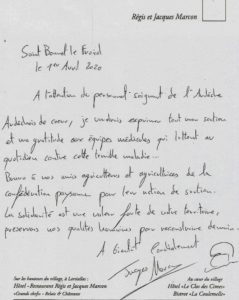 Régis et Jacques Marcon
Saint Bonnet le Froid
le 1er Avril 2020
A l'attention du personnel soignant de l'Ardèche
Ardéchois de coeur, je voudrais exprimer tout mon soutien
et ma gratitude aux équipes médicales qui luttent au
quotidien contre cette terrible maladie...
Bravo à nos amis agriculteurs et agricultrices de la
confédération paysanne pour leur action de soutien.
La solidarité est une valeur forte de notre territoire,
préservons nos qualités humaines pour reconstruire demain.
A bientôt Cordialement
Jacques Marcon
Sur les hauteurs du village, à Larsiallas :
Hôtel - Restaurant Régis et Jacques Marcon
«Grands chefs» - Relais & Châteaux
Au cœur du village
Hôtel «Le Clos des Cimes»
Bistrot «La Coulemelle»